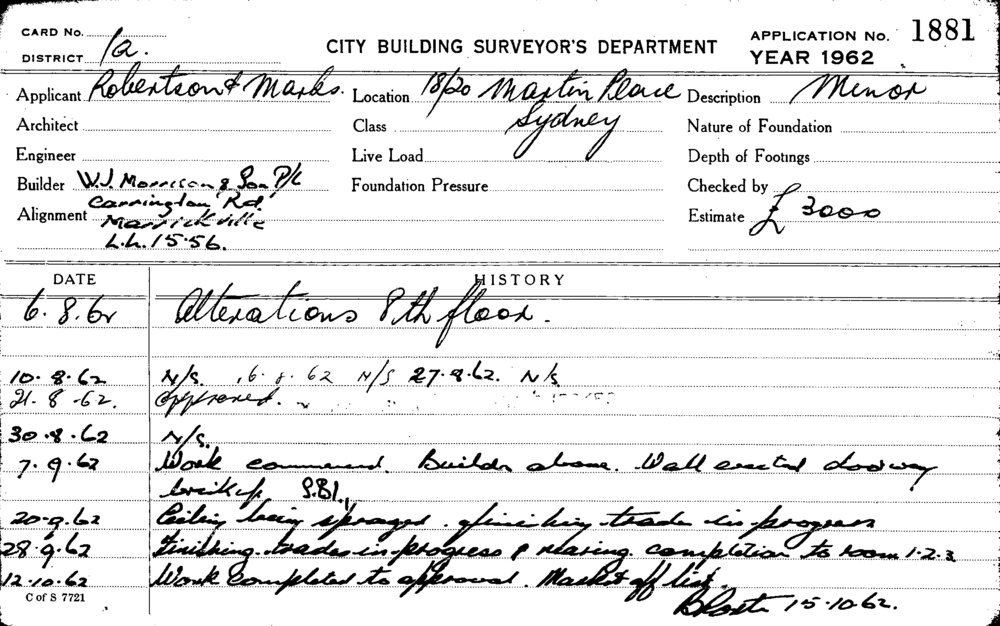 CARD No.
DISTRICT 1a.
CITY BUILDING SURVEYOR'S DEPARTMENT
APPLICATION No. 1881
YEAR 1962
Applicant Robertson & Marks. Location 18/20 Martin Place Description Minor
Architect Class Sydney Nature of Foundation
Engineer Live Load Depth of Footings
Builder W.J. Morrison & Son P/L Foundation Pressure Checked by
Carrington Rd.
Alignment Marrickville Estimate £ 3000
L.L. 15·56.
DATE HISTORY
6.8.62 Alterations 8th floor.
10.8.62 N/S. 16.8.62 N/S 27.8.62. N/S
21.8.62. approved.
30.8.62 N/S.
7.9.62 Work commenced. Builder above. Wall erected doorway
brick up
20.9.62 Ceiling being sprayed. finishing trades in progress
28.9.62 Finishing trades in progress & nearing completion to room 1.2.3
12.10.62 Work completed to approval. Marked off list.
C of S 7721
15.10.62.